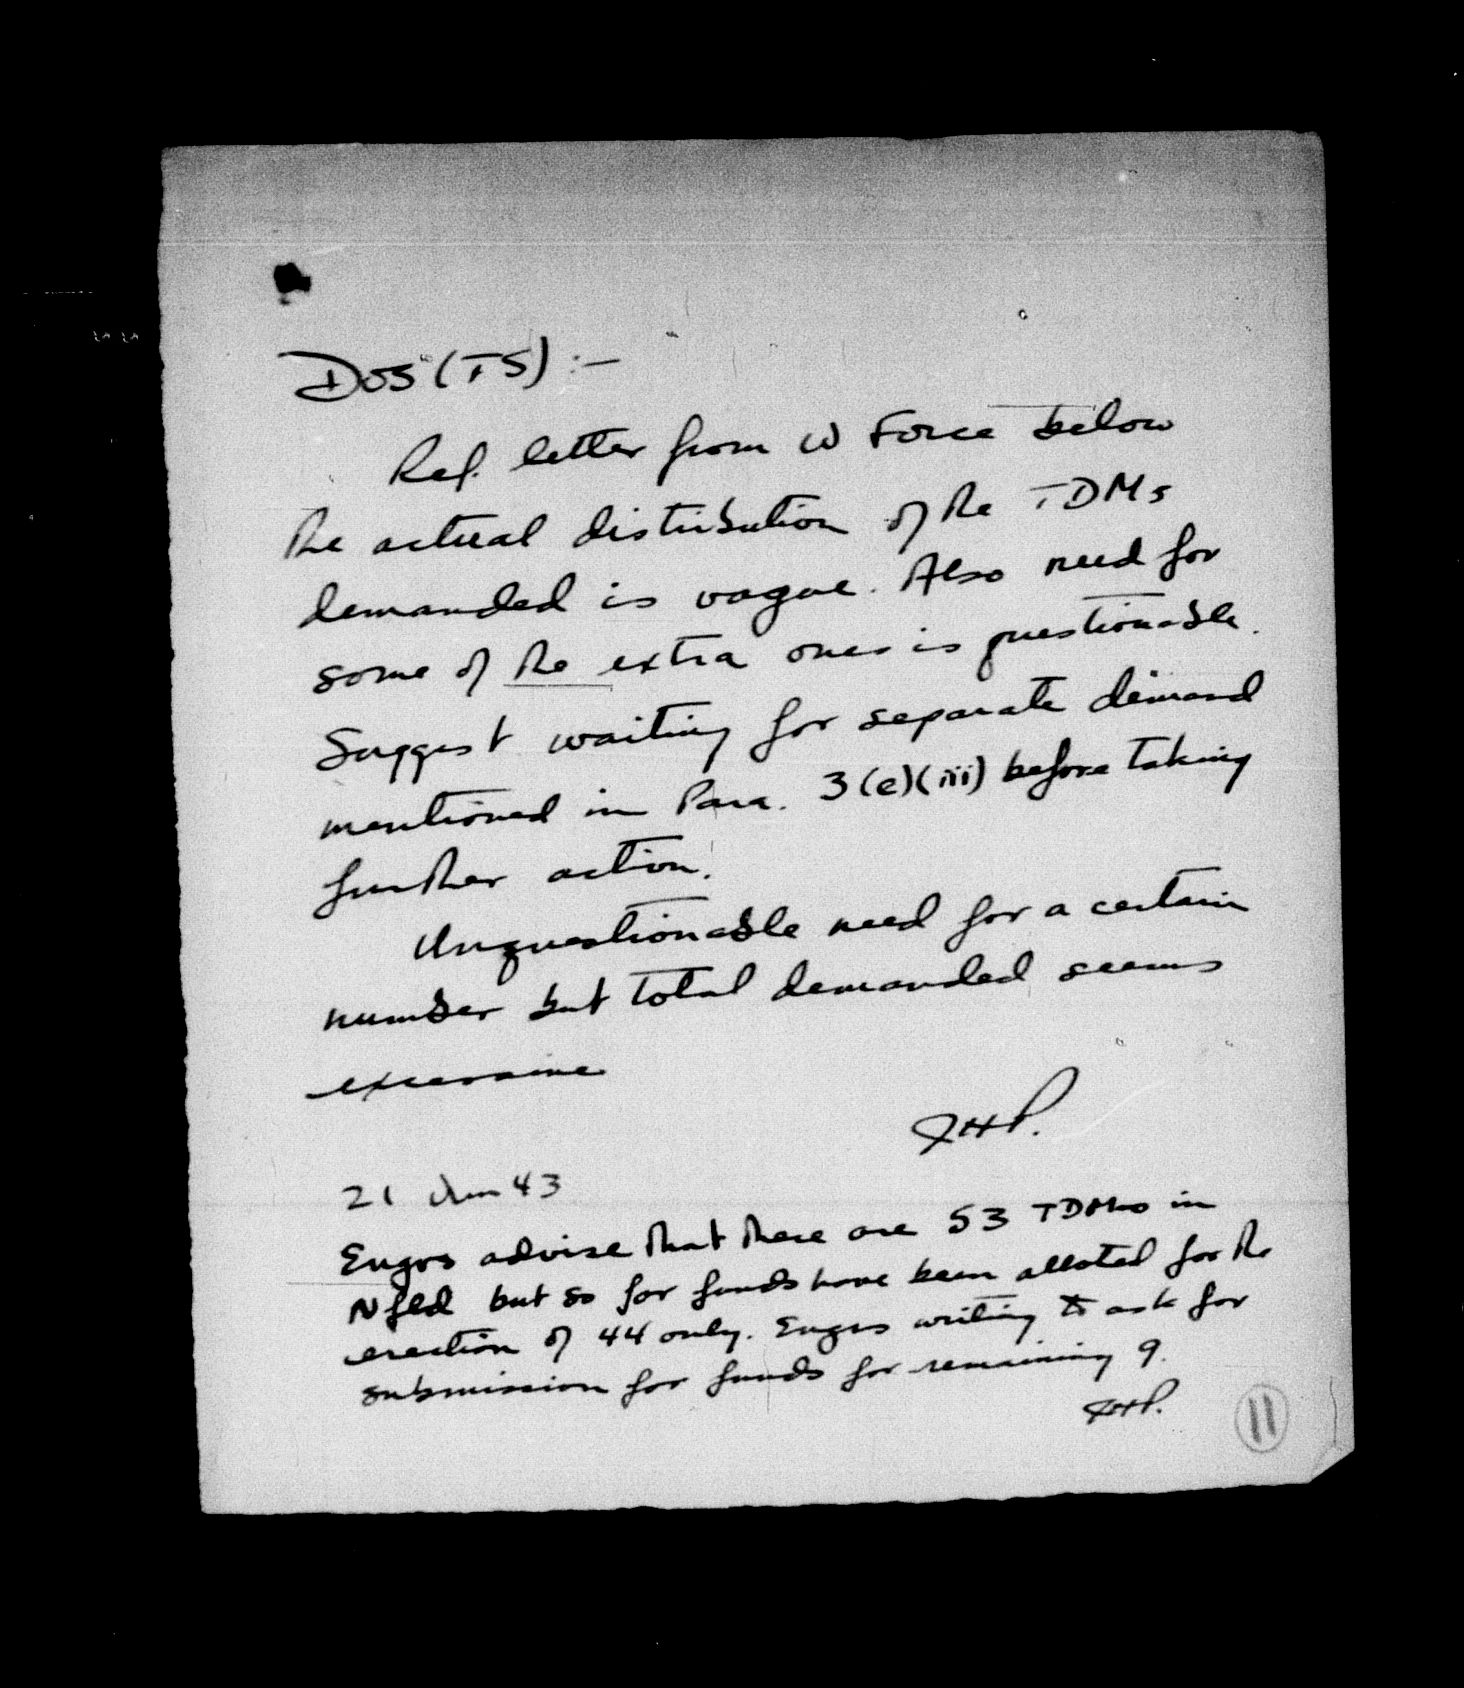 DOS (TS) :-
Ref. letter from W Force below
the actual distribution of the TDMs
demanded is vague. Also need for
some of the extra ones is questionable.
Suggest waiting for separate demand
mentioned in Para. 3(e)(iii) before taking
further action.
Unquestionable need for a certain
number but total demanded seems
excessive
JHP.
21 Jun 43
Engrs advise that there are 53 TDMs in
Nfld but so far funds have been alloted for the
erection of 44 only. Engrs writing to ask for
submission for funds for remaining 9.
JHP.
11